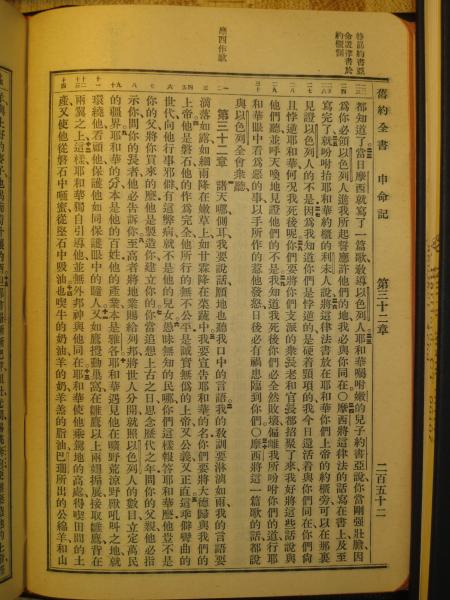 特諭約書亞
命置律書於
約櫃側
摩西作歌
舊約全書 申命記 第三十二章 二百五十二
都知道了當日摩西就寫了一篇歌教導以色列人耶和華囑咐嫩的兒子約書亞說你當剛强壯膽因
爲你必領以色列人進我所起誓應許他們的地我必與你同在○摩西將這律法的話寫在書上及至
寫完了就吩咐抬耶和華約櫃的利未人說將這律法書放在耶和華你們上帝的約櫃旁可以在那裏
見證以色列人的不是因爲我知道你們是悖逆的是硬着頸項的我今日還活着與你們同在你們尙
且悖逆耶和華何况我死後呢你們要將你們支派的衆長老和官長都招聚了來我好將這些話說與
他們聽並呼天喚地見證他們的不是我知道我死後你們必全然敗壞偏離我所吩咐你們的道行耶
和華眼中看爲惡的事以手所作的惹他發怒日後必有禍患臨到你們○摩西將這一篇歌的話都說
與以色列全會衆聽
第三十二章 諸天哪側耳我要說話願地也聽我口中的言語我的教訓要淋漓如雨我的言語要
滴落如露如細雨降在嫩草上如甘霖降在菜蔬中我要宣告耶和華的名你們要將大德歸與我們的
上帝他是磐石他的作爲完全他所行的無不公平是誠實無僞的上帝又公義又正直這乖僻彎曲的
世代向他行事邪僻有這弊病就不是他的兒女愚昧無知的民哪你們這樣報答耶和華麽他豈不是
你的父將你買來的麽他是製造你建立你的你當追想上古之日思念歷代之年問你的父親他必指
示你問你的長者他必告訴你至高者將地業賜給列邦將世人分開就照以色列人的數目立定萬民
的疆界耶和華的分本是他的百姓他的產業本是雅各耶和華遇見他在曠野荒涼野獸吼叫之地就
環繞他看顧他保護他如同保護眼中的瞳人又如鷹攪動巢窩在雛鷹以上兩翅搧展接取雛鷹背在
兩翼之上這樣耶和華獨自引導他並無外邦神與他同在耶和華使他乘駕地的高處得喫田間的土
產又使他從磐石中咂蜜從堅石中吸油也喫牛的奶油羊的奶羊羔的脂油巴珊所出的公綿羊和山